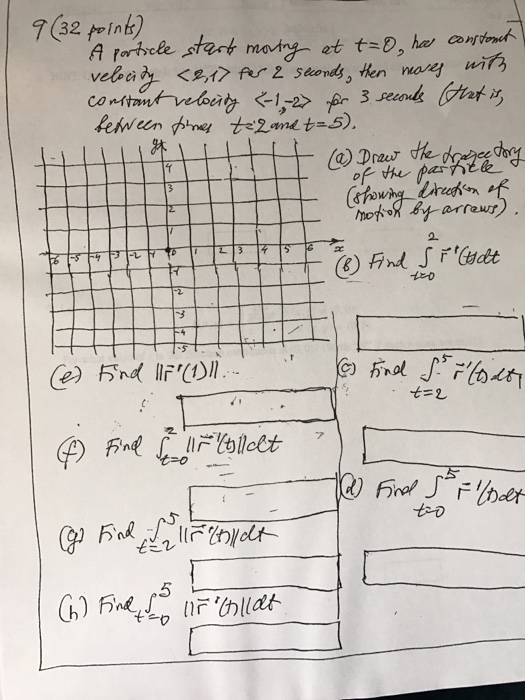 9 (32 points)
A particle starts moving at t=0, has constant
velocity <2,1> for 2 seconds, then moves with
constant velocity <-1,-2> for 3 seconds (that is,
between times t=2 and t=5).
(a) Draw the trajectory
of the particle
(showing direction of
motion by arrows).
y
4
3
2
1
-6 -5 -4 -3 -2 -1 0 1 2 3 4 5 6 x
-1
-2
-3
-4
-5
(b) Find ∫_{t=0}^{2} r⃗'(t)dt
(e) Find ||r⃗'(1)||.
(c) Find ∫_{t=2}^{5} r⃗'(t)dt
(f) Find ∫_{t=0}^{2} ||r⃗'(t)||dt
(d) Find ∫_{t=0}^{5} r⃗'(t)dt
(g) Find ∫_{t=2}^{5} ||r⃗'(t)||dt
(h) Find ∫_{t=0}^{5} ||r⃗'(t)||dt